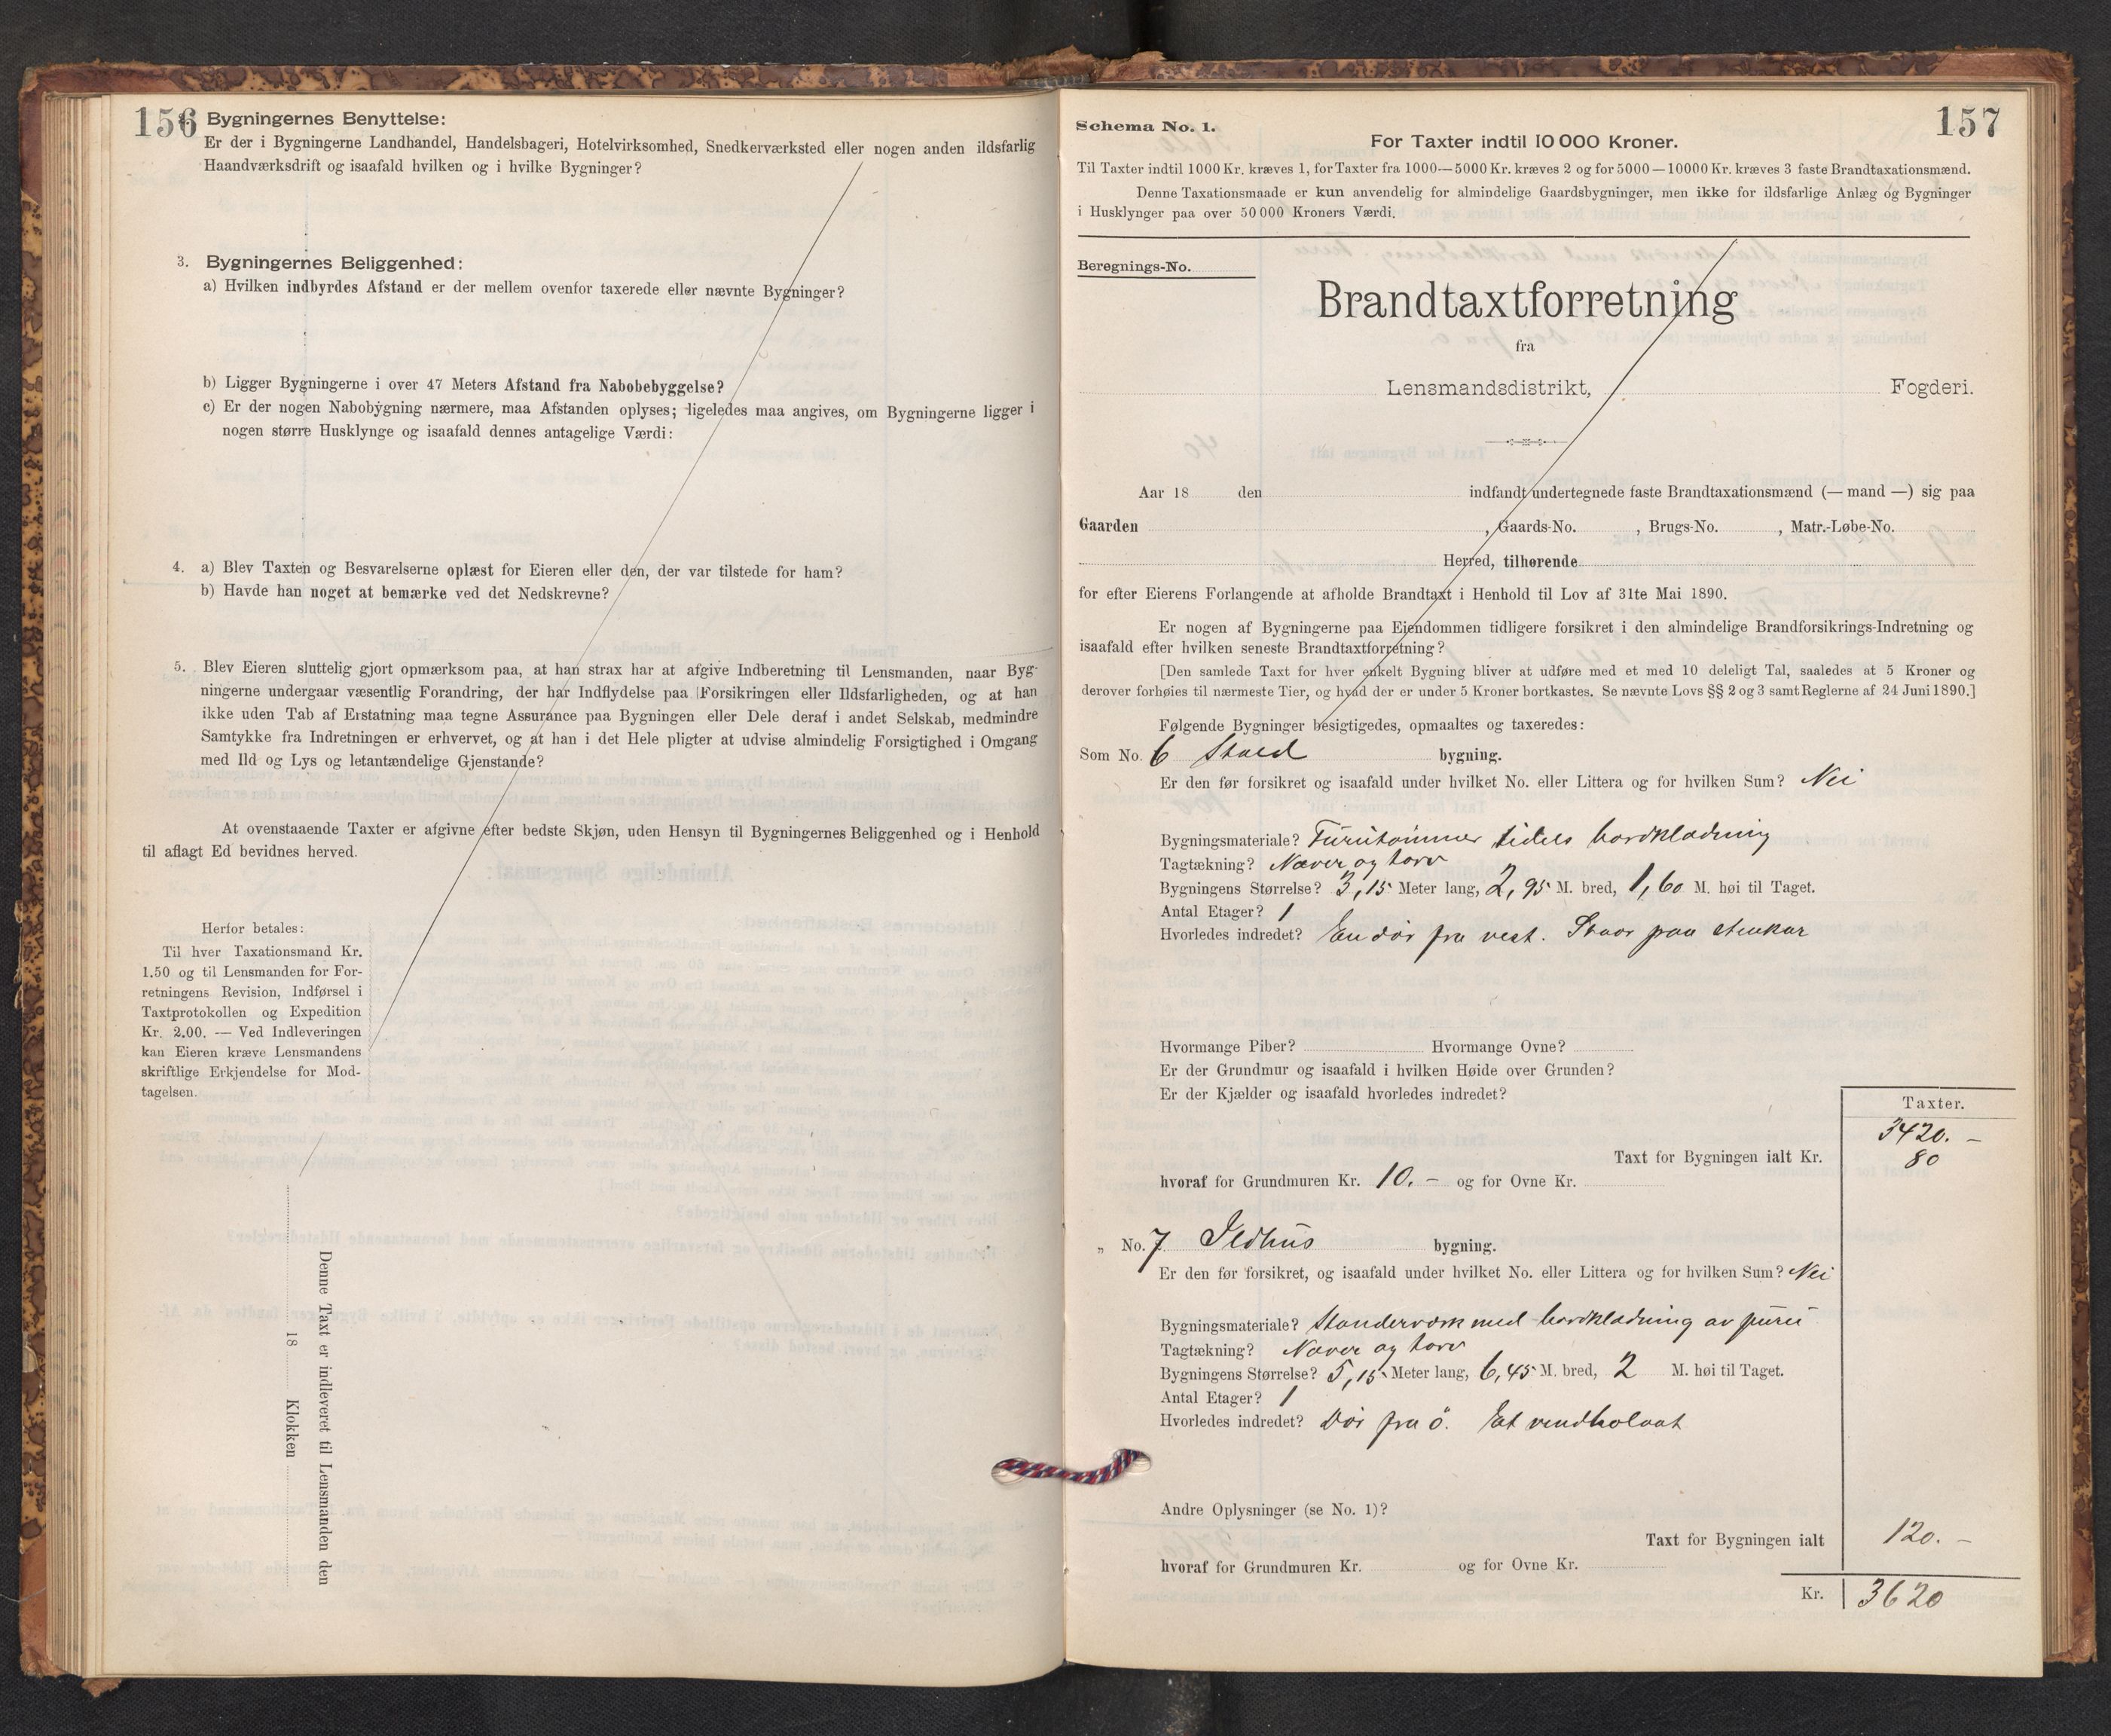 156
Bygningernes Benyttelse:
Er der i Bygningerne Landhandel, Handelsbageri, Hotelvirksomhed, Snedkerværksted eller nogen anden ildsfarlig
Haandværksdrift og isaafald hvilken og i hvilke Bygninger?
3. Bygningernes Beliggenhed:
a) Hvilken indbyrdes Afstand er der mellem ovenfor taxerede eller nævnte Bygninger?
b) Ligger Bygningerne i over 47 Meters Afstand fra Nabobebyggelse?
c) Er der nogen Nabobygning nærmere, maa Afstanden oplyses; ligeledes maa angives, om Bygningerne ligger i
nogen større Husklynge og isaafald dennes antagelige Værdi:
4. a) Blev Taxten og Besvarelserne oplæst for Eieren eller den, der var tilstede for ham?
b) Havde han noget at bemærke ved det Nedskrevne?
5. Blev Eieren sluttelig gjort opmærksom paa, at han strax har at afgive Indberetning til Lensmanden, naar Byg-
ningerne undergaar væsentlig Forandring, der har Indflydelse paa Forsikringen eller Ildsfarligheden, og at han
ikke uden Tab af Erstatning maa tegne Assurance paa Bygningen eller Dele deraf i andet Selskab, medmindre
Samtykke fra Indretningen er erhvervet, og at han i det Hele pligter at udvise almindelig Forsigtighed i Omgang
med Ild og Lys og letantændelige Gjenstande?
At ovenstaaende Taxter er afgivne efter bedste Skjøn, uden Hensyn til Bygningernes Beliggenhed og i Henhold
til aflagt Ed bevidnes herved.
Herfor betales:
Til hver Taxationsmand Kr.
1.50 og til Lensmanden for For-
retningens Revision, Indførsel i
Taxtprotokollen og Expedition
Kr. 2.00. — Ved Indleveringen
kan Eieren kræve Lensmandens
skriftlige Erkjendelse for Mod-
tagelsen.
Denne Taxt er indleveret til Lensmanden den
18 Klokken
157
Schema No. 1.
For Taxter indtil 10 000 Kroner.
Til Taxter indtil 1000 Kr. kræves 1, for Taxter fra 1000—5000 Kr. kræves 2 og for 5000—10000 Kr. kræves 3 faste Brandtaxationsmænd.
Denne Taxationsmaade er kun anvendelig for almindelige Gaardsbygninger, men ikke for ildsfarlige Anlæg og Bygninger
i Husklynger paa over 50 000 Kroners Værdi.
Beregnings-No.
Brandtaxtforretning
fra
Lensmandsdistrikt, Fogderi.
Aar 18 den indfandt undertegnede faste Brandtaxationsmænd (— mand —) sig paa
Gaarden , Gaards-No. , Brugs-No. , Matr.-Løbe-No.
Herred, tilhørende
for efter Eierens Forlangende at afholde Brandtaxt i Henhold til Lov af 31te Mai 1890.
Er nogen af Bygningerne paa Eiendommen tidligere forsikret i den almindelige Brandforsikrings-Indretning og
isaafald efter hvilken seneste Brandtaxtforretning?
[Den samlede Taxt for hver enkelt Bygning bliver at udføre med et med 10 deleligt Tal, saaledes at 5 Kroner og
derover forhøies til nærmeste Tier, og hvad der er under 5 Kroner bortkastes. Se nævnte Lovs §§ 2 og 3 samt Reglerne af 24 Juni 1890.]
Følgende Bygninger besigtigedes, opmaaltes og taxeredes:
Som No. 6 Stald bygning.
Er den før forsikret og isaafald under hvilket No. eller Littera og for hvilken Sum? Nei
Bygningsmateriale? Furutømmer tidels bordklædning
Tagtækning? Næver og torv
Bygningens Størrelse? 3,15 Meter lang, 2,95 M. bred, 1,60 M. høi til Taget.
Antal Etager? 1
Hvorledes indredet? En dør fra vest. Staar paa stenkar
Hvormange Piber? Hvormange Ovne?
Er der Grundmur og isaafald i hvilken Høide over Grunden?
Er der Kjælder og isaafald hvorledes indredet?
Taxter.
3420. –
Taxt for Bygningen ialt Kr. 80
hvoraf for Grundmuren Kr. 10. – og for Ovne Kr.
„ No. 7 Ildhus bygning.
Er den før forsikret, og isaafald under hvilket No. eller Littera og for hvilken Sum? Nei
Bygningsmateriale? Standerværk med bordklædning av furu
Tagtækning? Næver og torv
Bygningens Størrelse? 5,15 Meter lang, 6,45 M. bred, 2 M. høi til Taget.
Antal Etager? 1
Hvorledes indredet? Dør fra ö. Et vindholaat
Andre Oplysninger (se No. 1)?
Taxt for Bygningen ialt 120. –
hvoraf for Grundmuren Kr. og for Ovne Kr.
Kr. 3620